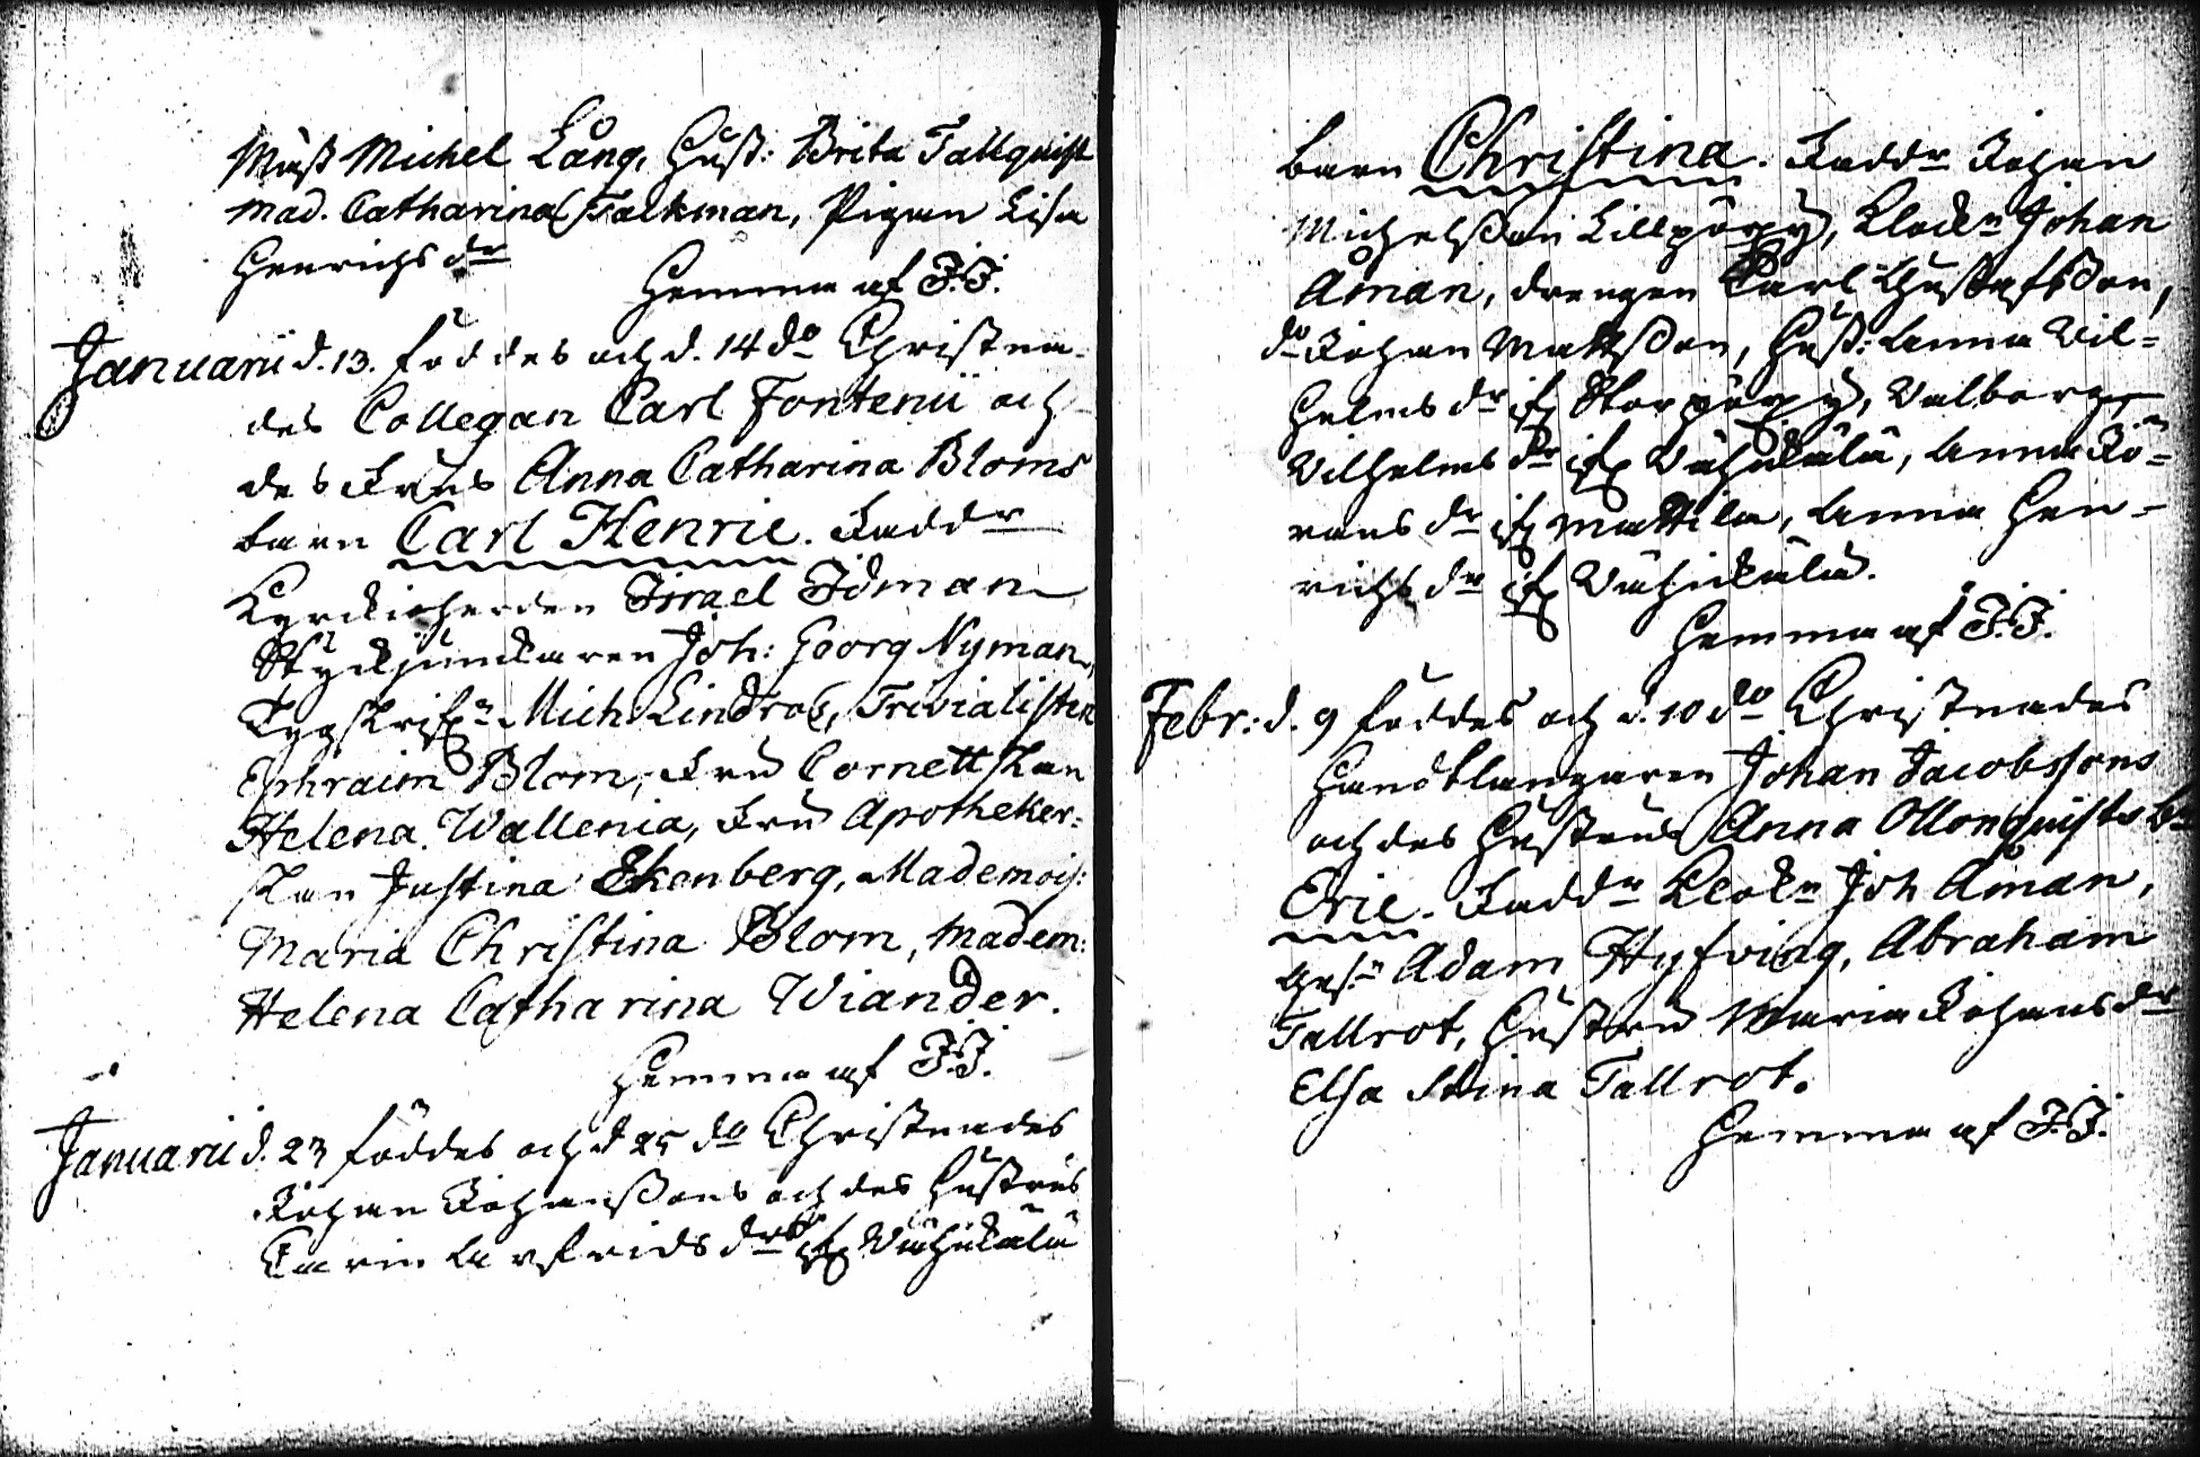 Must Michel Lång, Hust: Brita Tallquist
Mad. Catharina Falkman, Pigan Lisa
Henrichs dr
Hemma af I.I.
Januarii d. 13. föddes och d. 14 do Christna-
des Collegan Carl Fontenii och
des Frus Anna Catharina Bloms
barn Carl Henric. Faddr
Kyrckioherden Israel Idman
Styckjunckaren Joh: Georg Nyman,
Tygskrifn Mich Lindroos, Trivialisten
Ephraim Blom, Fru Cornettskan
Helena Wallenia, Fru Apotheker-
skan Justina Ekenberg, Mademois:
Maria Christina Blom, Madem:
Helena Catharina Wiander.
Hemma af I.I.
Januarii d. 23 föddes och d 25 do Christnades
Johan Johanssons och des Hustrus
Carin Arfvids drs ifr Wähikälä
barn Christina. Faddr Johan
Michelsson Lillpöxy, Klockn Johan
Åman, drengen Carl Gustafsson,
do Johan Mattsson, Hust: Anna Wil-
helms dr ifr Storpöxy, Valborg
Wilhelms dr ifr Wähikälä, Anna Jö-
rans dr ifr Mattila, Anna Hen-
richs dr ifr Wähikälä.
Hemma af I.I.
Febr: d. 9 föddes och d. 10 do Christnades
Handtlangaren Johan Jacobssons
och des Hustrus Anna Ollonquists bn
Eric. Faddr Klockn Joh Åman,
Ges:n Adam Hyfving, Abraham
Tallrot, Hustru Maria Johans dr
Elsa Stina Tallrot.
Hemma af I.I.